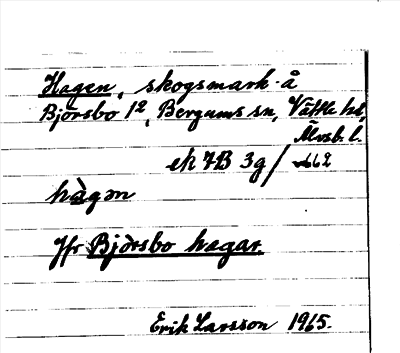 Hagen, skogsmark å
Björsbo 1², Bergums sn, Vättle hd,
Älvsb. l.
ek 7B 3g/
hàgən
Jfr Björsbo hagar.
Erik Larsson 1965.